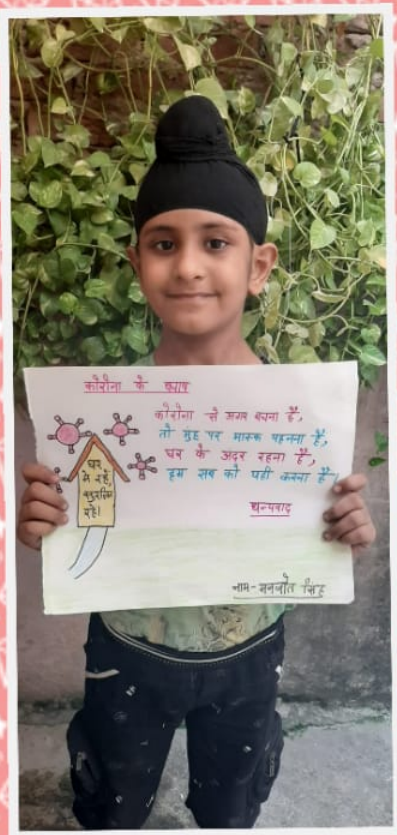 कोरोना के बचाव
कोरोना से अगर बचना है,
तो मुंह पर मास्क पहनना है,
घर के अंदर रहना है,
हम सब को यही करना है।
धन्यवाद
घर
में रहें,
सुरक्षित
रहें।
नाम- मनजोत सिंह